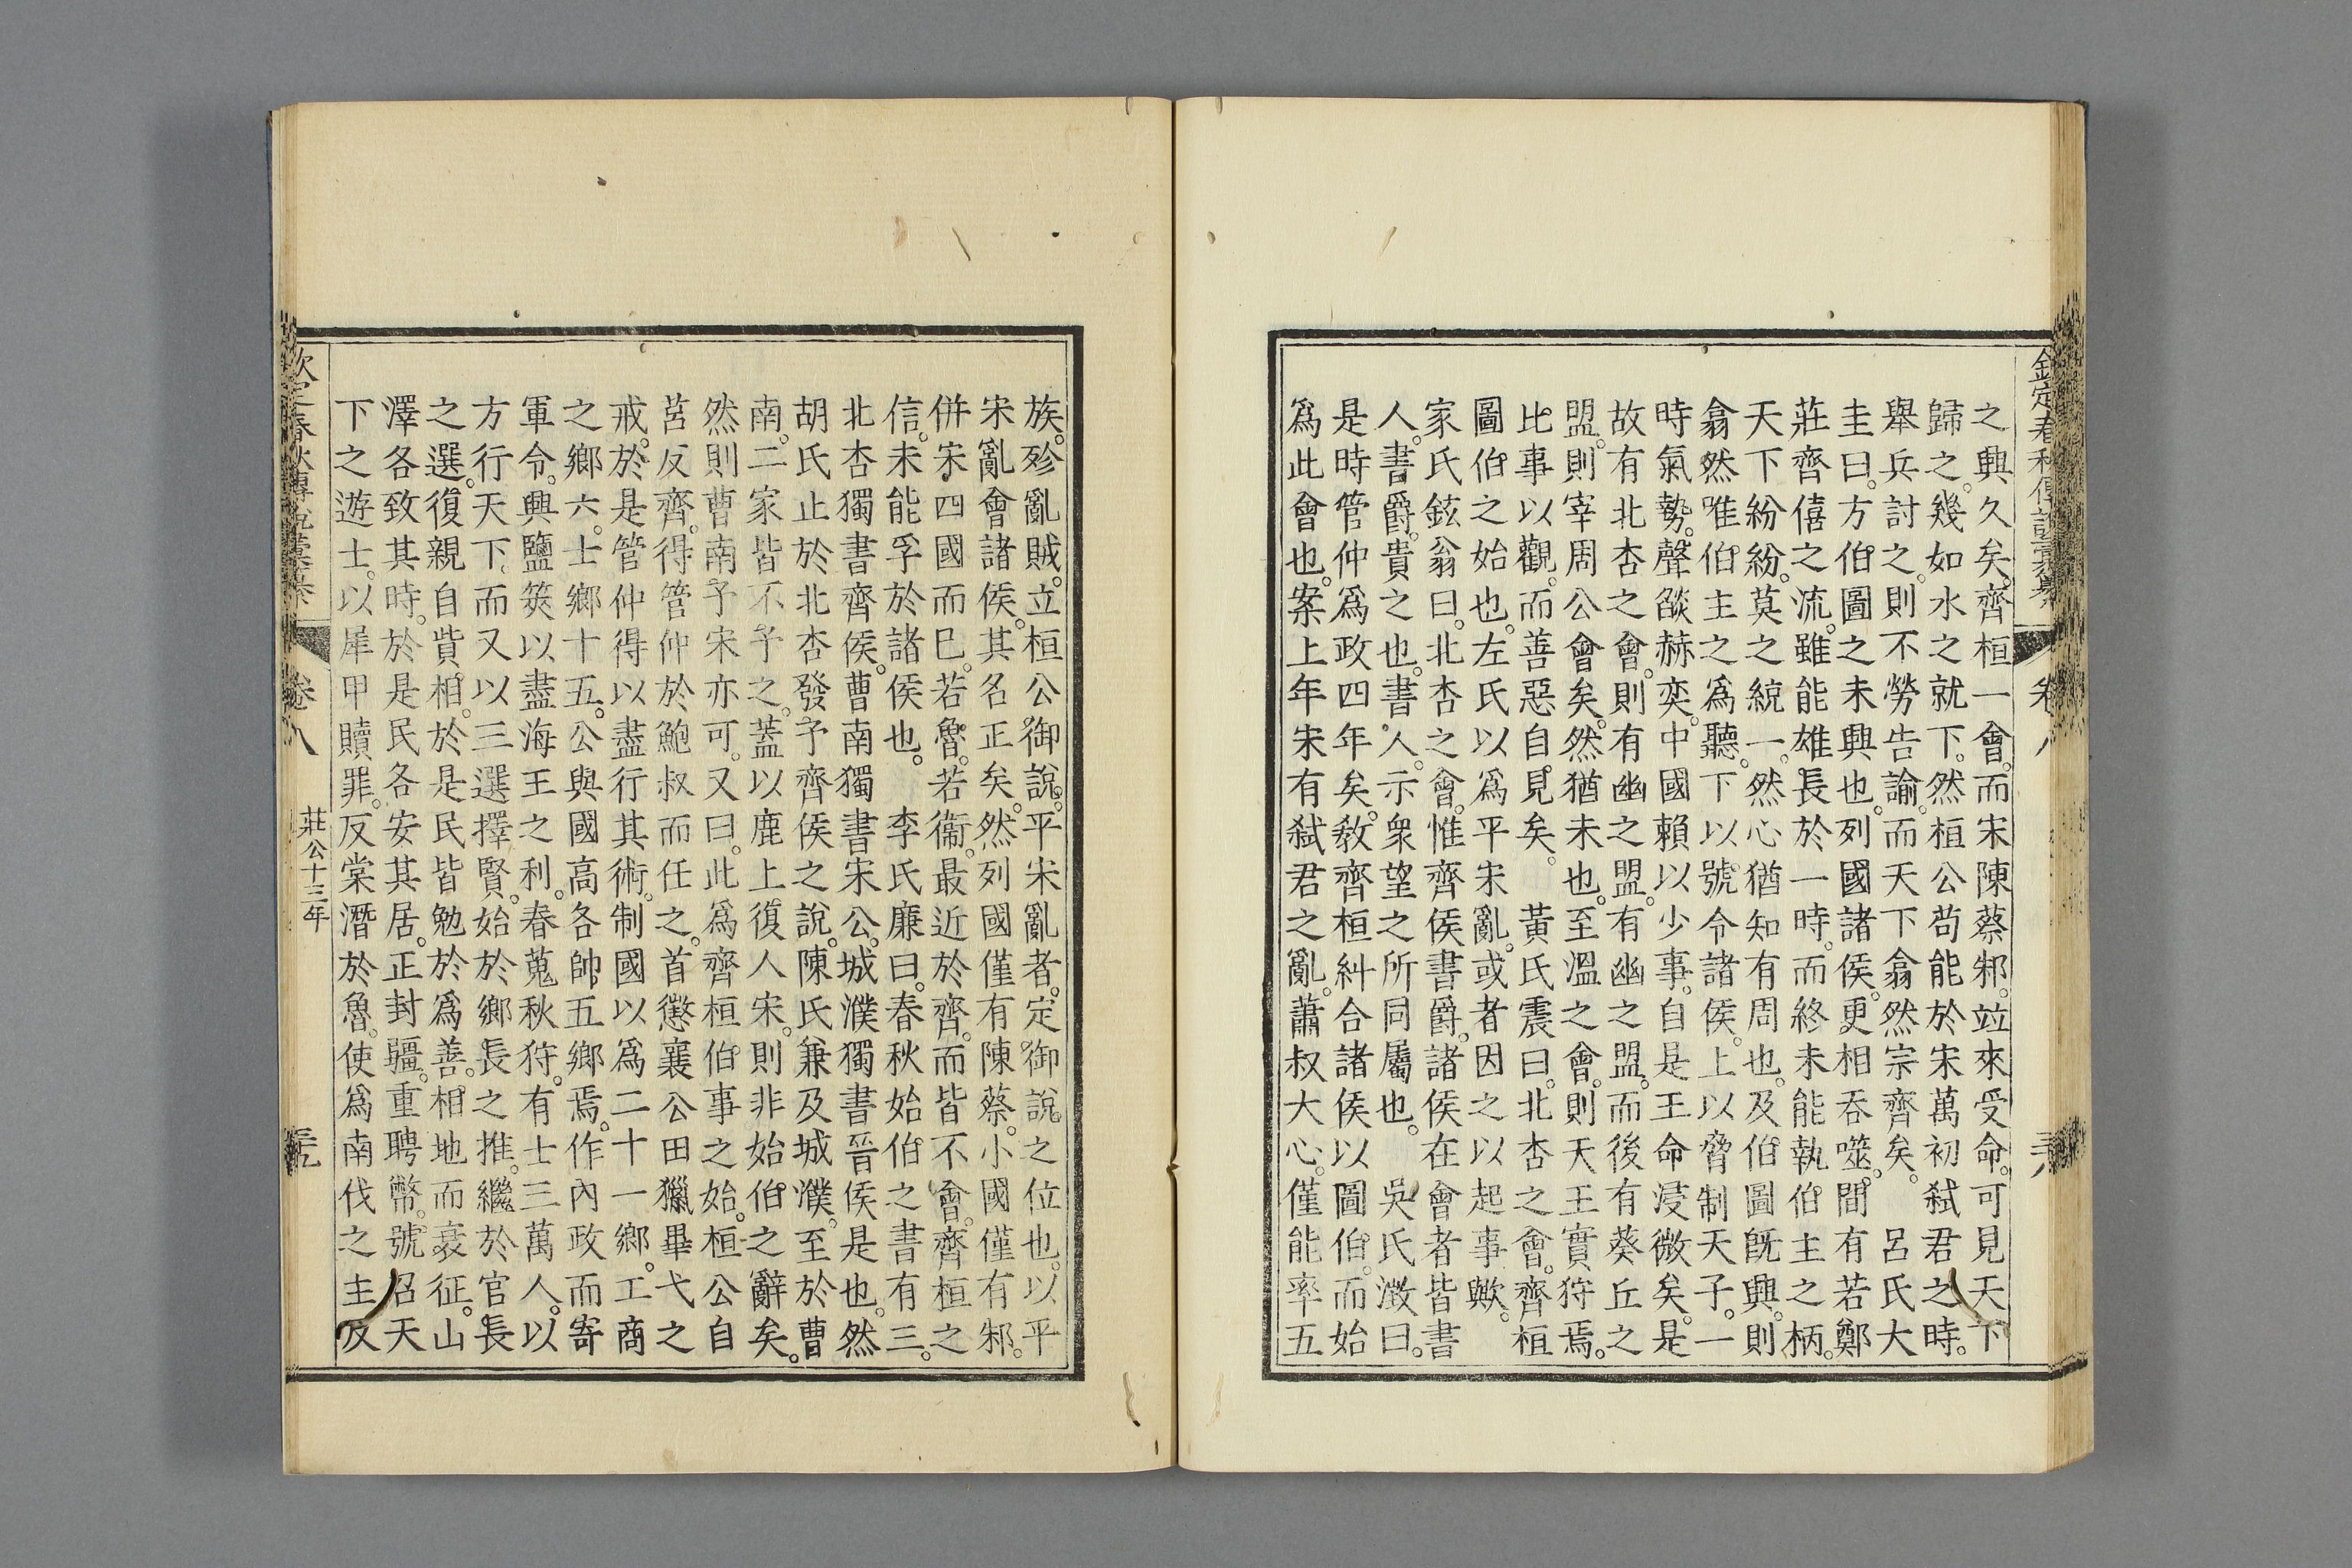 欽定春秋傳說彙纂 卷八
之興久矣。齊桓一會。而宋陳蔡邾。竝來受命。可見天下
歸之。幾如水之就下。然桓公苟能於宋萬初弑君之時。
舉兵討之。則不勞告諭。而天下翕然宗齊矣。 呂氏大
圭曰。方伯圖之未興也。列國諸侯。更相吞噬。間有若鄭
莊齊僖之流。雖能雄長於一時。而終未能執伯主之柄。
天下紛紛。莫之統一。然心猶知有周也。及伯圖旣興。則
翕然唯伯主之爲聽。下以號令諸侯。上以脅制天子。一
時氣勢。聲燄赫奕。中國賴以少事。自是王命浸微矣。是
故有北杏之會。則有幽之盟。有幽之盟。而後有葵丘之
盟。則宰周公會矣。然猶未也。至溫之會。則天王實狩焉。
比事以觀。而善惡自見矣。 黃氏震曰。北杏之會。齊桓
圖伯之始也。左氏以爲平宋亂。或者因之以起事歟。
家氏鉉翁曰。北杏之會。惟齊侯書爵。諸侯在會者皆書
人。書爵。貴之也。書人。示衆望之所同屬也。 吳氏澂曰。
是時管仲爲政四年矣。敎齊桓糾合諸侯以圖伯。而始
爲此會也。案上年宋有弑君之亂。蕭叔大心。僅能率五
族。殄亂賊。立桓公御說。平宋亂者。定御說之位也。以平
宋亂會諸侯。其名正矣。然列國僅有陳蔡。小國僅有邾。
併宋四國而已。若魯。若衞。最近於齊。而皆不會。齊桓之
信。未能孚於諸侯也。 李氏廉曰。春秋始伯之書有三。
北杏獨書齊侯。曹南獨書宋公。城濮獨書晉侯是也。然
胡氏止於北杏發予齊侯之說。陳氏兼及城濮。至於曹
南。二家皆不予之。蓋以鹿上復人宋。則非始伯之辭矣。
然則曹南予宋亦可。又曰。此爲齊桓伯事之始。桓公自
莒反齊。得管仲於鮑叔而任之。首懲襄公田獵畢弋之
戒。於是管仲得以盡行其術。制國以爲二十一鄉。工商
之鄉六。士鄉十五。公與國高各帥五鄉焉。作內政而寄
軍令。興鹽筴以盡海王之利。春蒐秋狩。有士三萬人。以
方行天下。而又以三選擇賢。始於鄉長之推。繼於官長
之選。復親自訾相。於是民皆勉於爲善。相地而衰征。山
澤各致其時。於是民各安其居。正封疆。重聘幣。號召天
下之遊士。以犀甲贖罪。反棠潛於魯。使爲南伐之主。反
欽定春秋傳說彙纂 卷八 莊公十三年